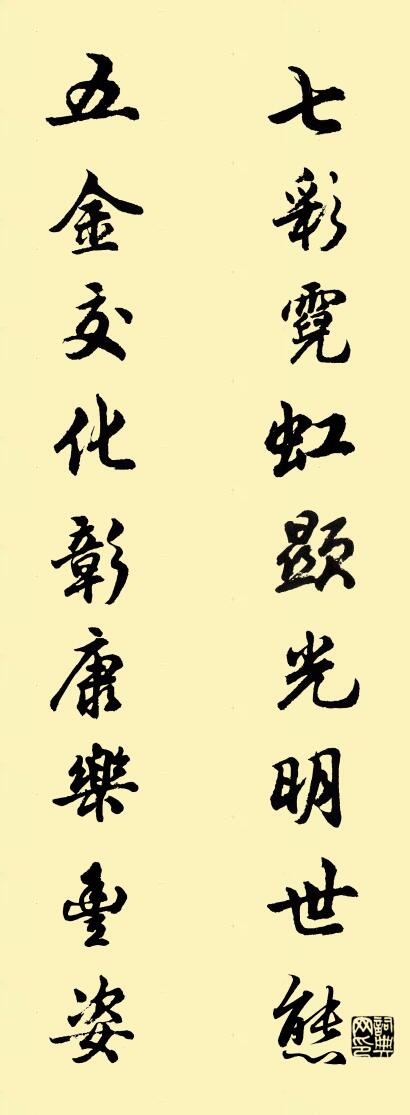 七彩霓虹顯光明世態
五金交化彰康樂豐姿
詞典网印